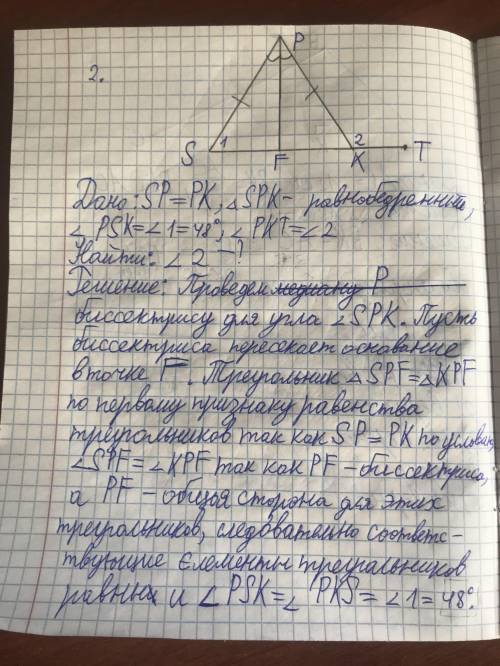 2.
P
S 1 F 2 K T
Дано: SP=PK, △SPK- равнобедренный,
∠PSK=∠1=48°, ∠PKT=∠2
Найти: ∠2-?
Решение: Проведем медиану P
биссектрису для угла ∠SPK. Пусть
биссектриса пересекает основание
в точке F. Треугольник △SPF=△KPF
по первому признаку равенства
треугольников так как SP=PK по условию,
∠SPF=∠KPF так как PF-биссектриса,
а PF-общая сторона для этих
треугольников, следовательно соответс-
твующие элементы треугольников
равны и ∠PSK=∠PKS=∠1=48°.